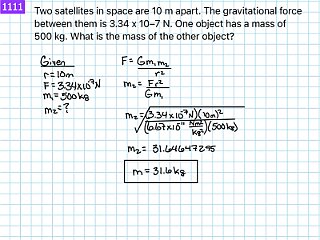 1111
Two satellites in space are 10 m apart. The gravitational force
between them is 3.34 x 10–7 N. One object has a mass of
500 kg. What is the mass of the other object?
Given
r = 10m
F = 3.34x10⁻⁷N
m₁ = 500kg
m₂ = ?
F = Gm₁m₂
r²
m₂ = Fr²
Gm₁
m₂ = √(3.34x10⁻⁷N)(10m)²
(6.67x10⁻¹¹ Nm²/kg²)(500kg)
m₂ = 31.64647295
m = 31.6kg